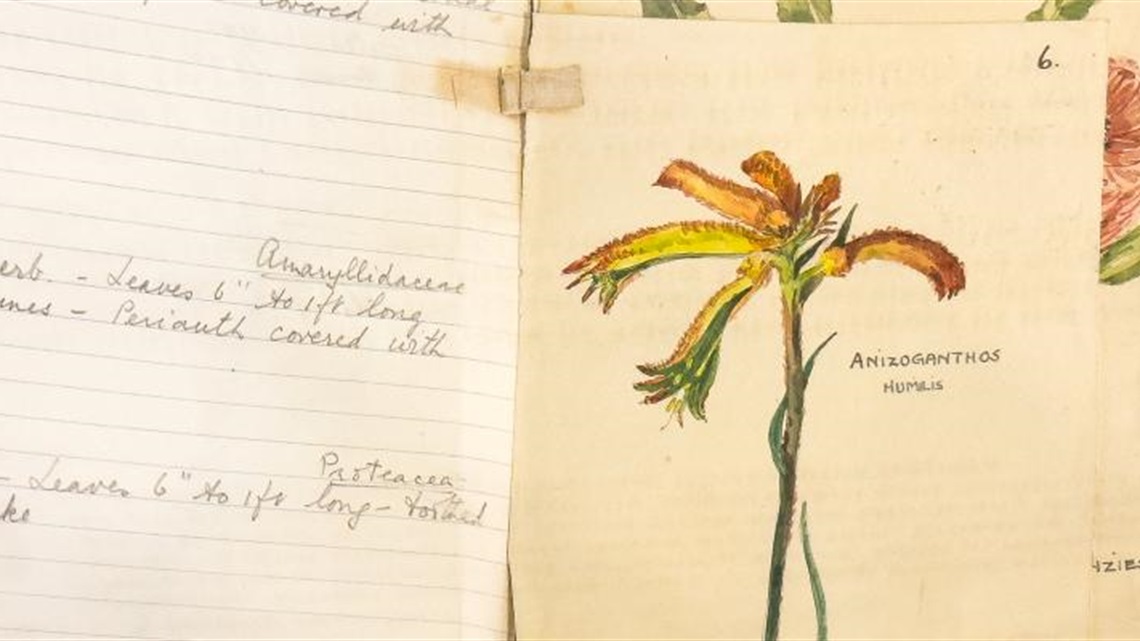 covered with
Amaryllidaceae
erb. - Leaves 6" to 1ft long
- Perianth covered with
Proteacea
- Leaves 6" to 1ft long - toothed
ke
6.
ANIZOGANTHOS
HUMILIS
NZIES